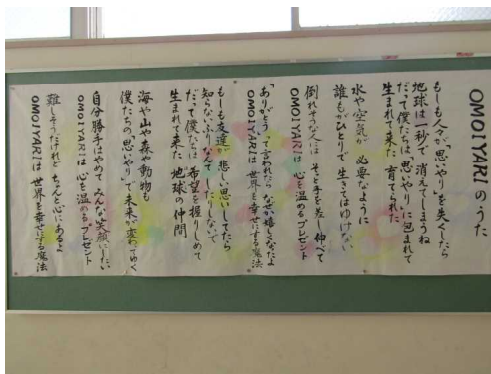 OMOIYARIのうた
もしも人々が「思いやり」を失くしたら
地球は一秒で 消えてしまうね
だって僕たちは「思いやり」に包まれて
生まれて来た 育てられた
水や空気が 必要なように
誰もがひとりで 生きてはゆけない
倒れそうな人には そっと手を差し伸べて
OMOIYARIは 心を温めるプレゼント
「ありがとう」って言われたら なぜか嬉しくなったよ
OMOIYARIは世界を幸せにする魔法
もしも友達が 悲しい思いしてたら
知らないふりなんて したりしないで
だって僕たちは 希望を握りしめて
生まれて来た 地球の仲間
海や山や森や動物も
僕たちの「思いやり」で未来が変わってゆく
自分勝手はやめて みんなを笑顔にしたい
OMOIYARIは 心を温めるプレゼント
難しそうだけれど ちゃんと心にあるよ
OMOIYARIは 世界を幸せにする魔法